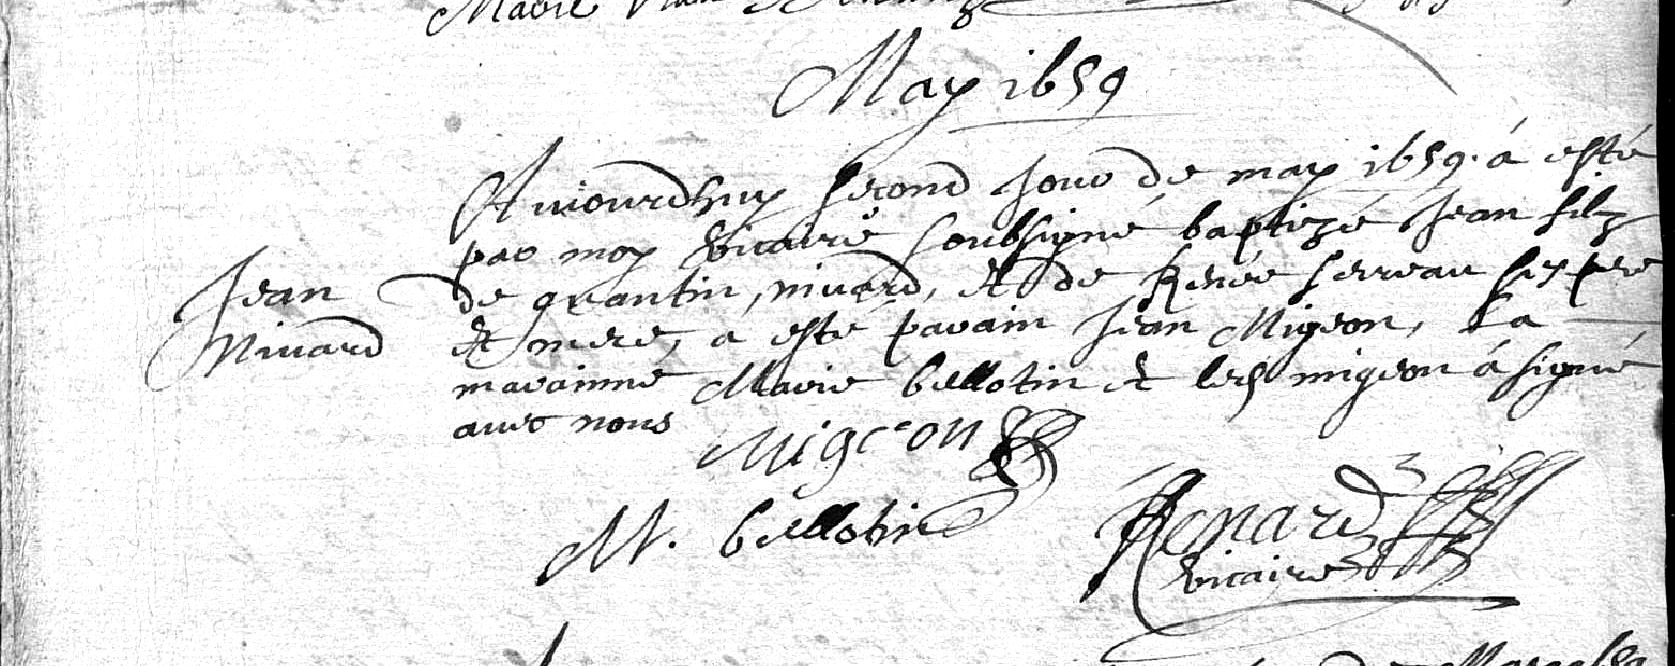 May 1659
Aujourdhuy second jour de may 1659. á esté
par moy vicaire soubsigné baptizé Jean filz
de quantin, nivard, et de Renée serreau ses pere
et mere, a esté parain Jean Migeon, La
maraînne Marie bellotin et led migeon á signé
avec nous
Jean
Nivard
Migeon
M. bellotin
Renard
vicaire